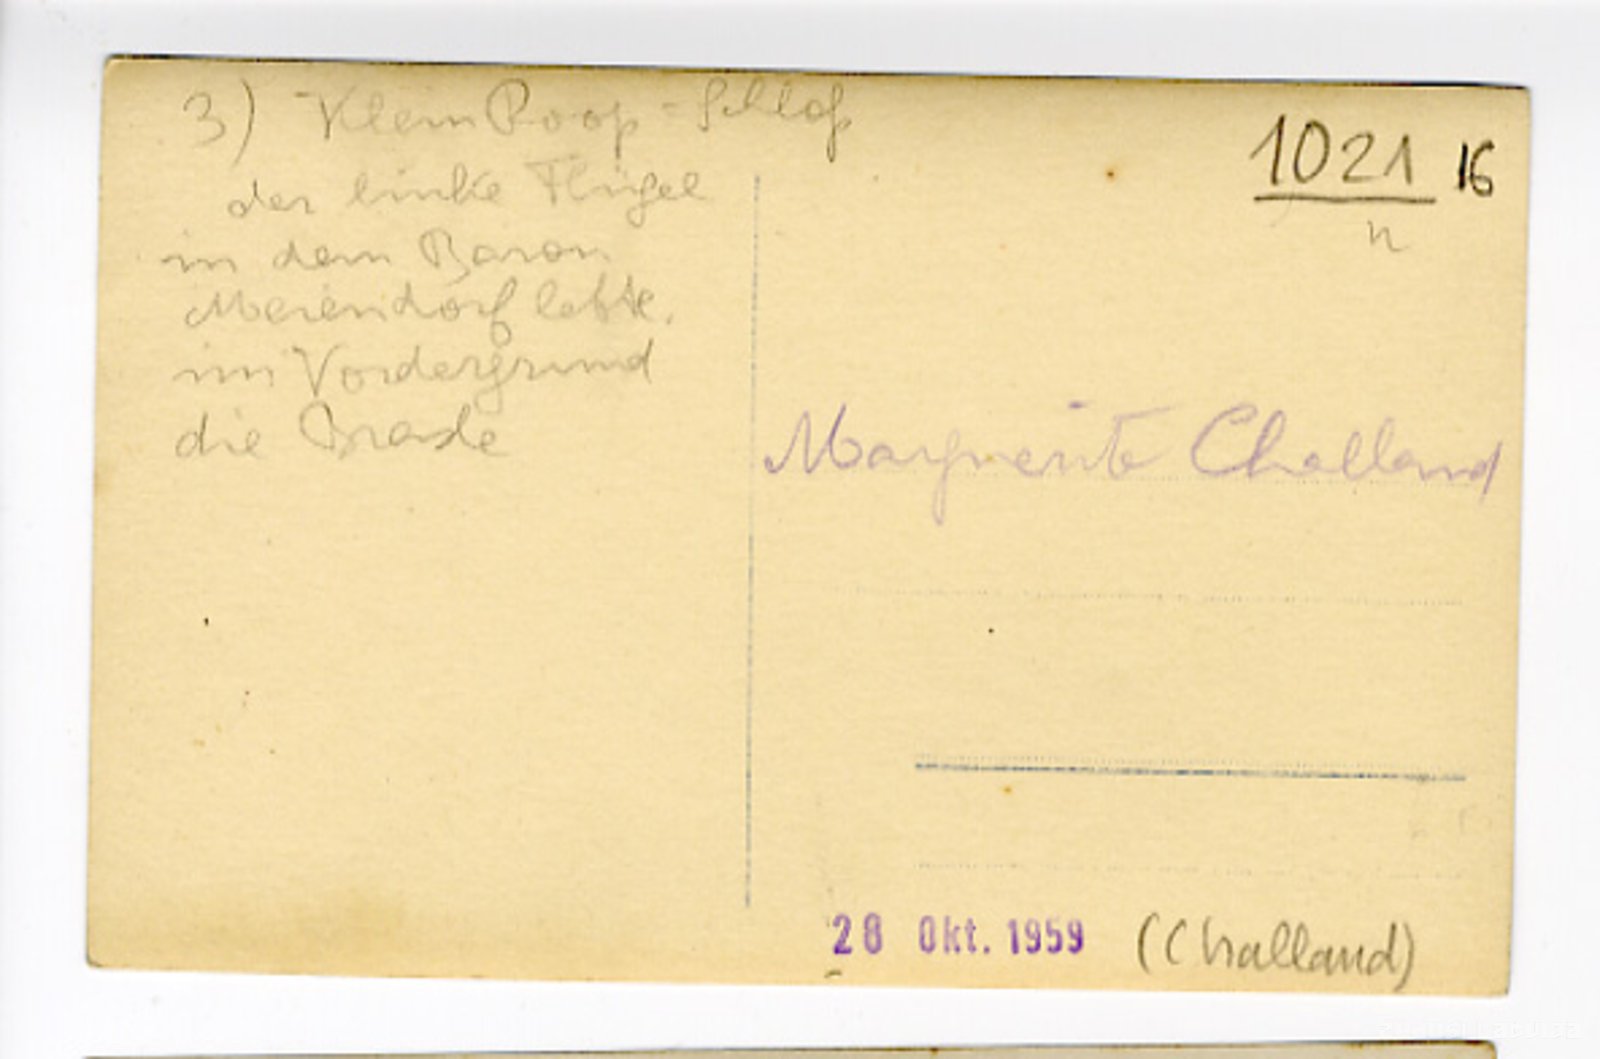 3) Klein Roop - Schloß
der linke Flügel
in dem Baron
Meiendorf lebte.
im Vordergrund
die Brasle
1021 16
n
Marguerite Challand
28 Okt. 1959 (Challand)